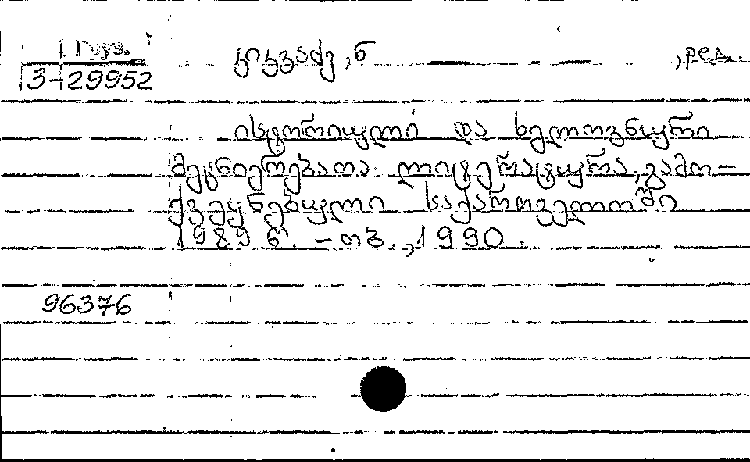 1 Груз.
3-29952
კიკვაძე, ნ , ред.
ისტორიული და ხელოვნური
მეცნიერებათა ლიტერატურა, გამო-
ქვეყნებული საქართველოში
1989 წ. - თბ., 1990.
96376